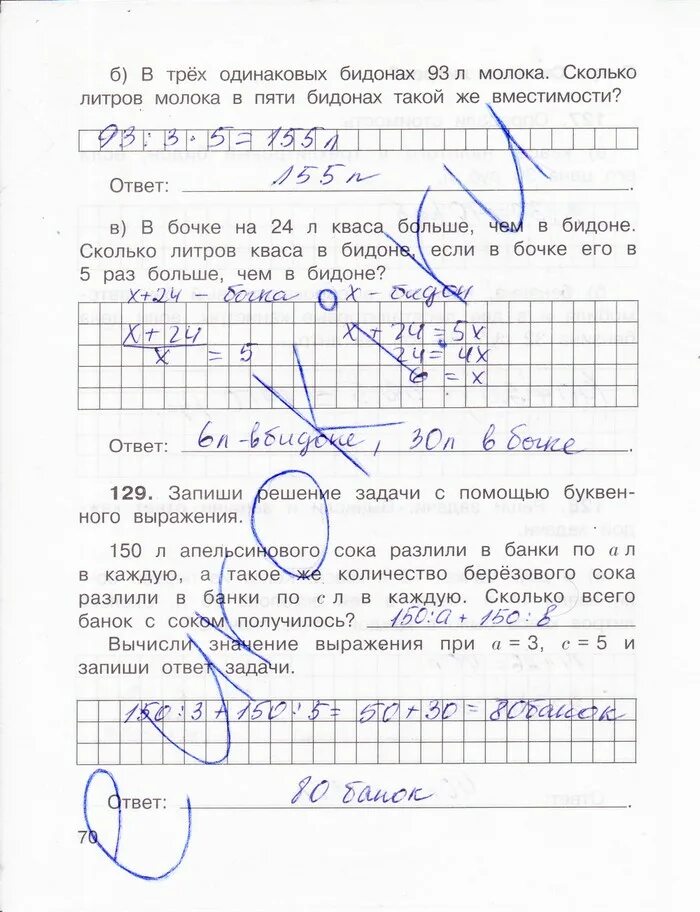 б) В трёх одинаковых бидонах 93 л молока. Сколько
литров молока в пяти бидонах такой же вместимости?
93 : 3 · 5 = 155 л
Ответ: 155 л.
в) В бочке на 24 л кваса больше, чем в бидоне.
Сколько литров кваса в бидоне, если в бочке его в
5 раз больше, чем в бидоне?
x+24 – бочка x – бидон
x + 24 x + 24 = 5x
x = 5 24 = 4x
6 = x
Ответ: 6л – в бидоне, 30л в бочке.
129. Запиши решение задачи с помощью буквен-
ного выражения.
150 л апельсинового сока разлили в банки по a л
в каждую, а такое же количество берёзового сока
разлили в банки по c л в каждую. Сколько всего
банок с соком получилось? 150:a + 150:в
Вычисли значение выражения при a = 3, c = 5 и
запиши ответ задачи.
150 : 3 + 150 : 5 = 50 + 30 = 80 банок
Ответ: 80 банок.
70